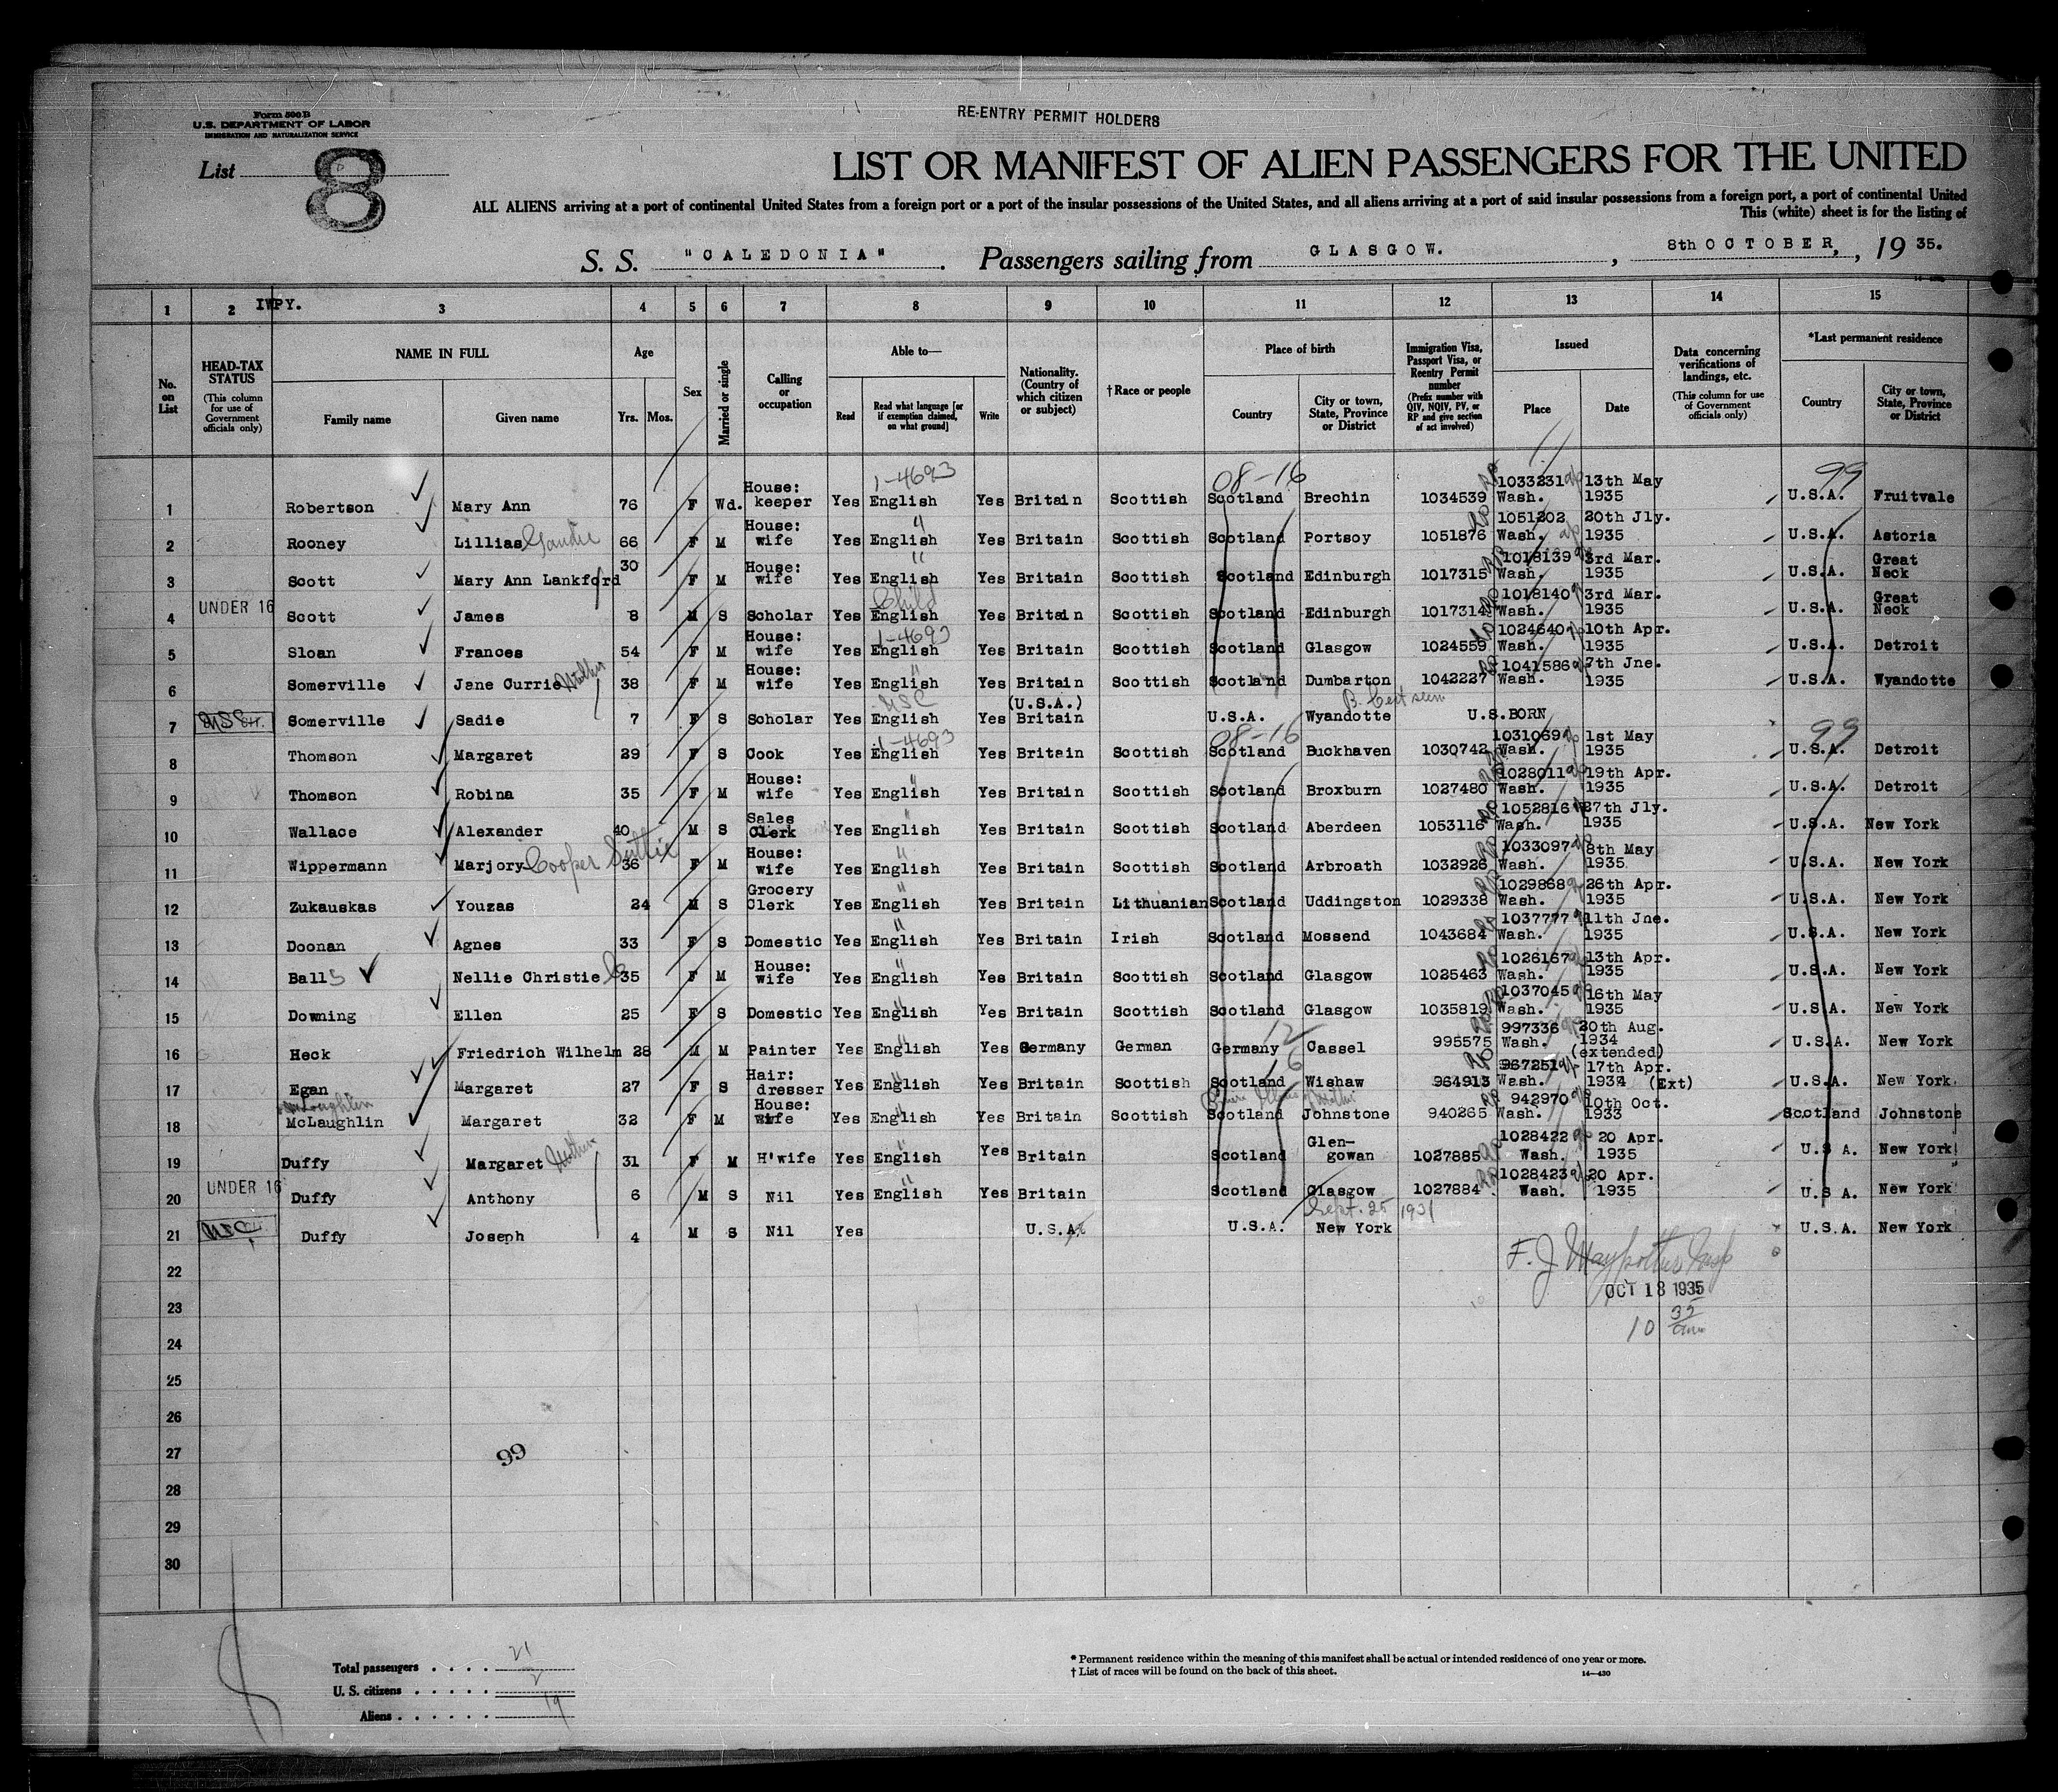 Form 500 B
U.S. DEPARTMENT OF LABOR
IMMIGRATION AND NATURALIZATION SERVICE
RE-ENTRY PERMIT HOLDERS
List 8
LIST OR MANIFEST OF ALIEN PASSENGERS FOR THE UNITED
ALL ALIENS arriving at a port of continental United States from a foreign port or a port of the insular possessions of the United States, and all aliens arriving at a port of said insular possessions from a foreign port, a port of continental United
This (white) sheet is for the listing of
S. S. "CALEDONIA". Passengers sailing from GLASGOW., 8th OCTOBER, , 19 35.
1 2 3 4 5 6 7 8 9 10 11 12 13 14 15
No. on List
HEAD-TAX STATUS (This column for use of Government officials only)
NAME IN FULL Family name Given name
Age Yrs. Mos.
Sex
Married or single
Calling or occupation
Able to— Read Read what language [or if exemption claimed, on what ground] Write
Nationality. (Country of which citizen or subject)
†Race or people
Place of birth Country City or town, State, Province or District
Immigration Visa, Passport Visa, or Reentry Permit number (Prefix number with QIV, NQIV, PV, or RP and give section of act involved)
Issued Place Date
Data concerning verifications of landings, etc. (This column for use of Government officials only)
*Last permanent residence Country City or town, State, Province or District
1-4693 08-16 99
1 Robertson Mary Ann 76 F Wd. House: keeper Yes English Yes Britain Scottish Scotland Brechin 1034539 RP 1033231 Wash. 13th May 1935 U.S.A. Fruitvale
2 Rooney Lillias 66 F M House: wife Yes English Yes Britain Scottish Scotland Portsoy 1051876 RP 1051202 Wash. 20th Jly. 1935 U.S.A. Astoria
3 Scott Mary Ann Lankford 30 F M House: wife Yes English Yes Britain Scottish Scotland Edinburgh 1017315 RP 1018139 Wash. 3rd Mar. 1935 U.S.A. Great Neck
UNDER 16 Child
4 Scott James 8 M S Scholar Yes English Yes Britain Scottish Scotland Edinburgh 1017314 RP 1018140 Wash. 3rd Mar. 1935 U.S.A. Great Neck
1-4693
5 Sloan Frances 54 F M House: wife Yes English Yes Britain Scottish Scotland Glasgow 1024559 RP 1024640 Wash. 10th Apr. 1935 U.S.A. Detroit
6 Somerville Jane Currie Mother 38 F M House: wife Yes English Yes Britain Scottish Scotland Dumbarton 1042227 RP 1041586 Wash. 7th Jne. 1935 U.S.A. Wyandotte
USC (U.S.A.) B. Cert seen
7 USC Somerville Sadie 7 F S Scholar Yes English Yes Britain U.S.A. Wyandotte U.S.BORN
1-4693 08-16 99
8 Thomson Margaret 29 F S Cook Yes English Yes Britain Scottish Scotland Buckhaven 1030742 1031069 Wash. 1st May 1935 U.S.A. Detroit
9 Thomson Robina 35 F M House: wife Yes English Yes Britain Scottish Scotland Broxburn 1027480 RP 1028011 Wash. 19th Apr. 1935 U.S.A. Detroit
10 Wallace Alexander 40 M S Sales Clerk Yes English Yes Britain Scottish Scotland Aberdeen 1053116 RP 1052816 Wash. 27th Jly. 1935 U.S.A. New York
11 Wippermann Marjory Cooper Suttie 36 F M House: wife Yes English Yes Britain Scottish Scotland Arbroath 1032926 RP 1033097 Wash. 8th May 1935 U.S.A. New York
12 Zukauskas Youzas 24 M S Grocery Clerk Yes English Yes Britain Lithuanian Scotland Uddingston 1029338 RP 1029868 Wash. 26th Apr. 1935 U.S.A. New York
13 Doonan Agnes 33 F S Domestic Yes English Yes Britain Irish Scotland Mossend 1043684 RP 1037777 Wash. 11th Jne. 1935 U.S.A. New York
14 Ball S Nellie Christie 35 F M House: wife Yes English Yes Britain Scottish Scotland Glasgow 1025463 RP 1026167 Wash. 13th Apr. 1935 U.S.A. New York
15 Downing Ellen 25 F S Domestic Yes English Yes Britain Scottish Scotland Glasgow 1035819 RP 1037045 Wash. 16th May 1935 U.S.A. New York
12
16 Heck Friedrich Wilhelm 28 M M Painter Yes English Yes Germany German Germany Cassel 995575 RP 997336 Wash. 20th Aug. 1934 (extended) U.S.A. New York
6
17 Egan Margaret 27 F S Hair: dresser Yes English Yes Britain Scottish Scotland Wishaw 964913 RP 967251 Wash. 17th Apr. 1934 (Ext) U.S.A. New York.
18 McLaughlin Margaret 32 F M House: wife Yes English Yes Britain Scottish Scotland Johnstone 940265 RP 942970 Wash. 10th Oct. 1933 Scotland Johnstone
19 Duffy Margaret Mother 31 F M H'wife Yes English Yes Britain Scotland Glen-gowan 1027885 RP 1028422 Wash. 20 Apr. 1935 U.S A. New York
UNDER 16
20 Duffy Anthony 6 M S Nil Yes English Yes Britain Scotland Glasgow 1027884 RP 1028423 Wash. 20 Apr. 1935 U.S A. New York
Sept. 25 1931
21 USC Duffy Joseph 4 M S Nil Yes U.S.A. U.S.A. New York U.S.A. New York
22
23 OCT 18 1935
24 10 35 am
25
26
27 99
28
29
30
Total passengers . . . . 21
U. S. citizens . . . . . 2
Aliens . . . . . . 19
* Permanent residence within the meaning of this manifest shall be actual or intended residence of one year or more.
† List of races will be found on the back of this sheet. 14—430